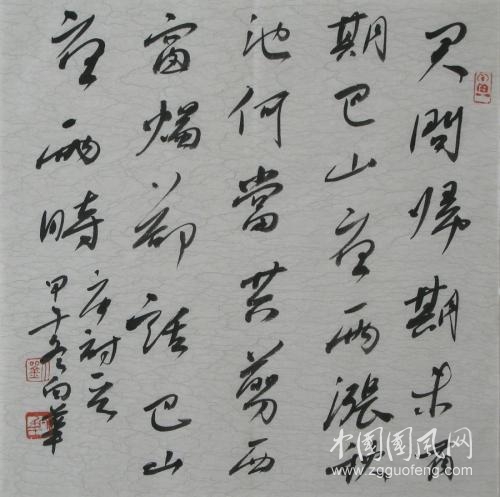 君問歸期未有
期巴山夜雨漲秋
池何當共剪西
窗燭卻話巴山
夜雨時
唐詩
冬向華
中国國风网
www.zgguofeng.com